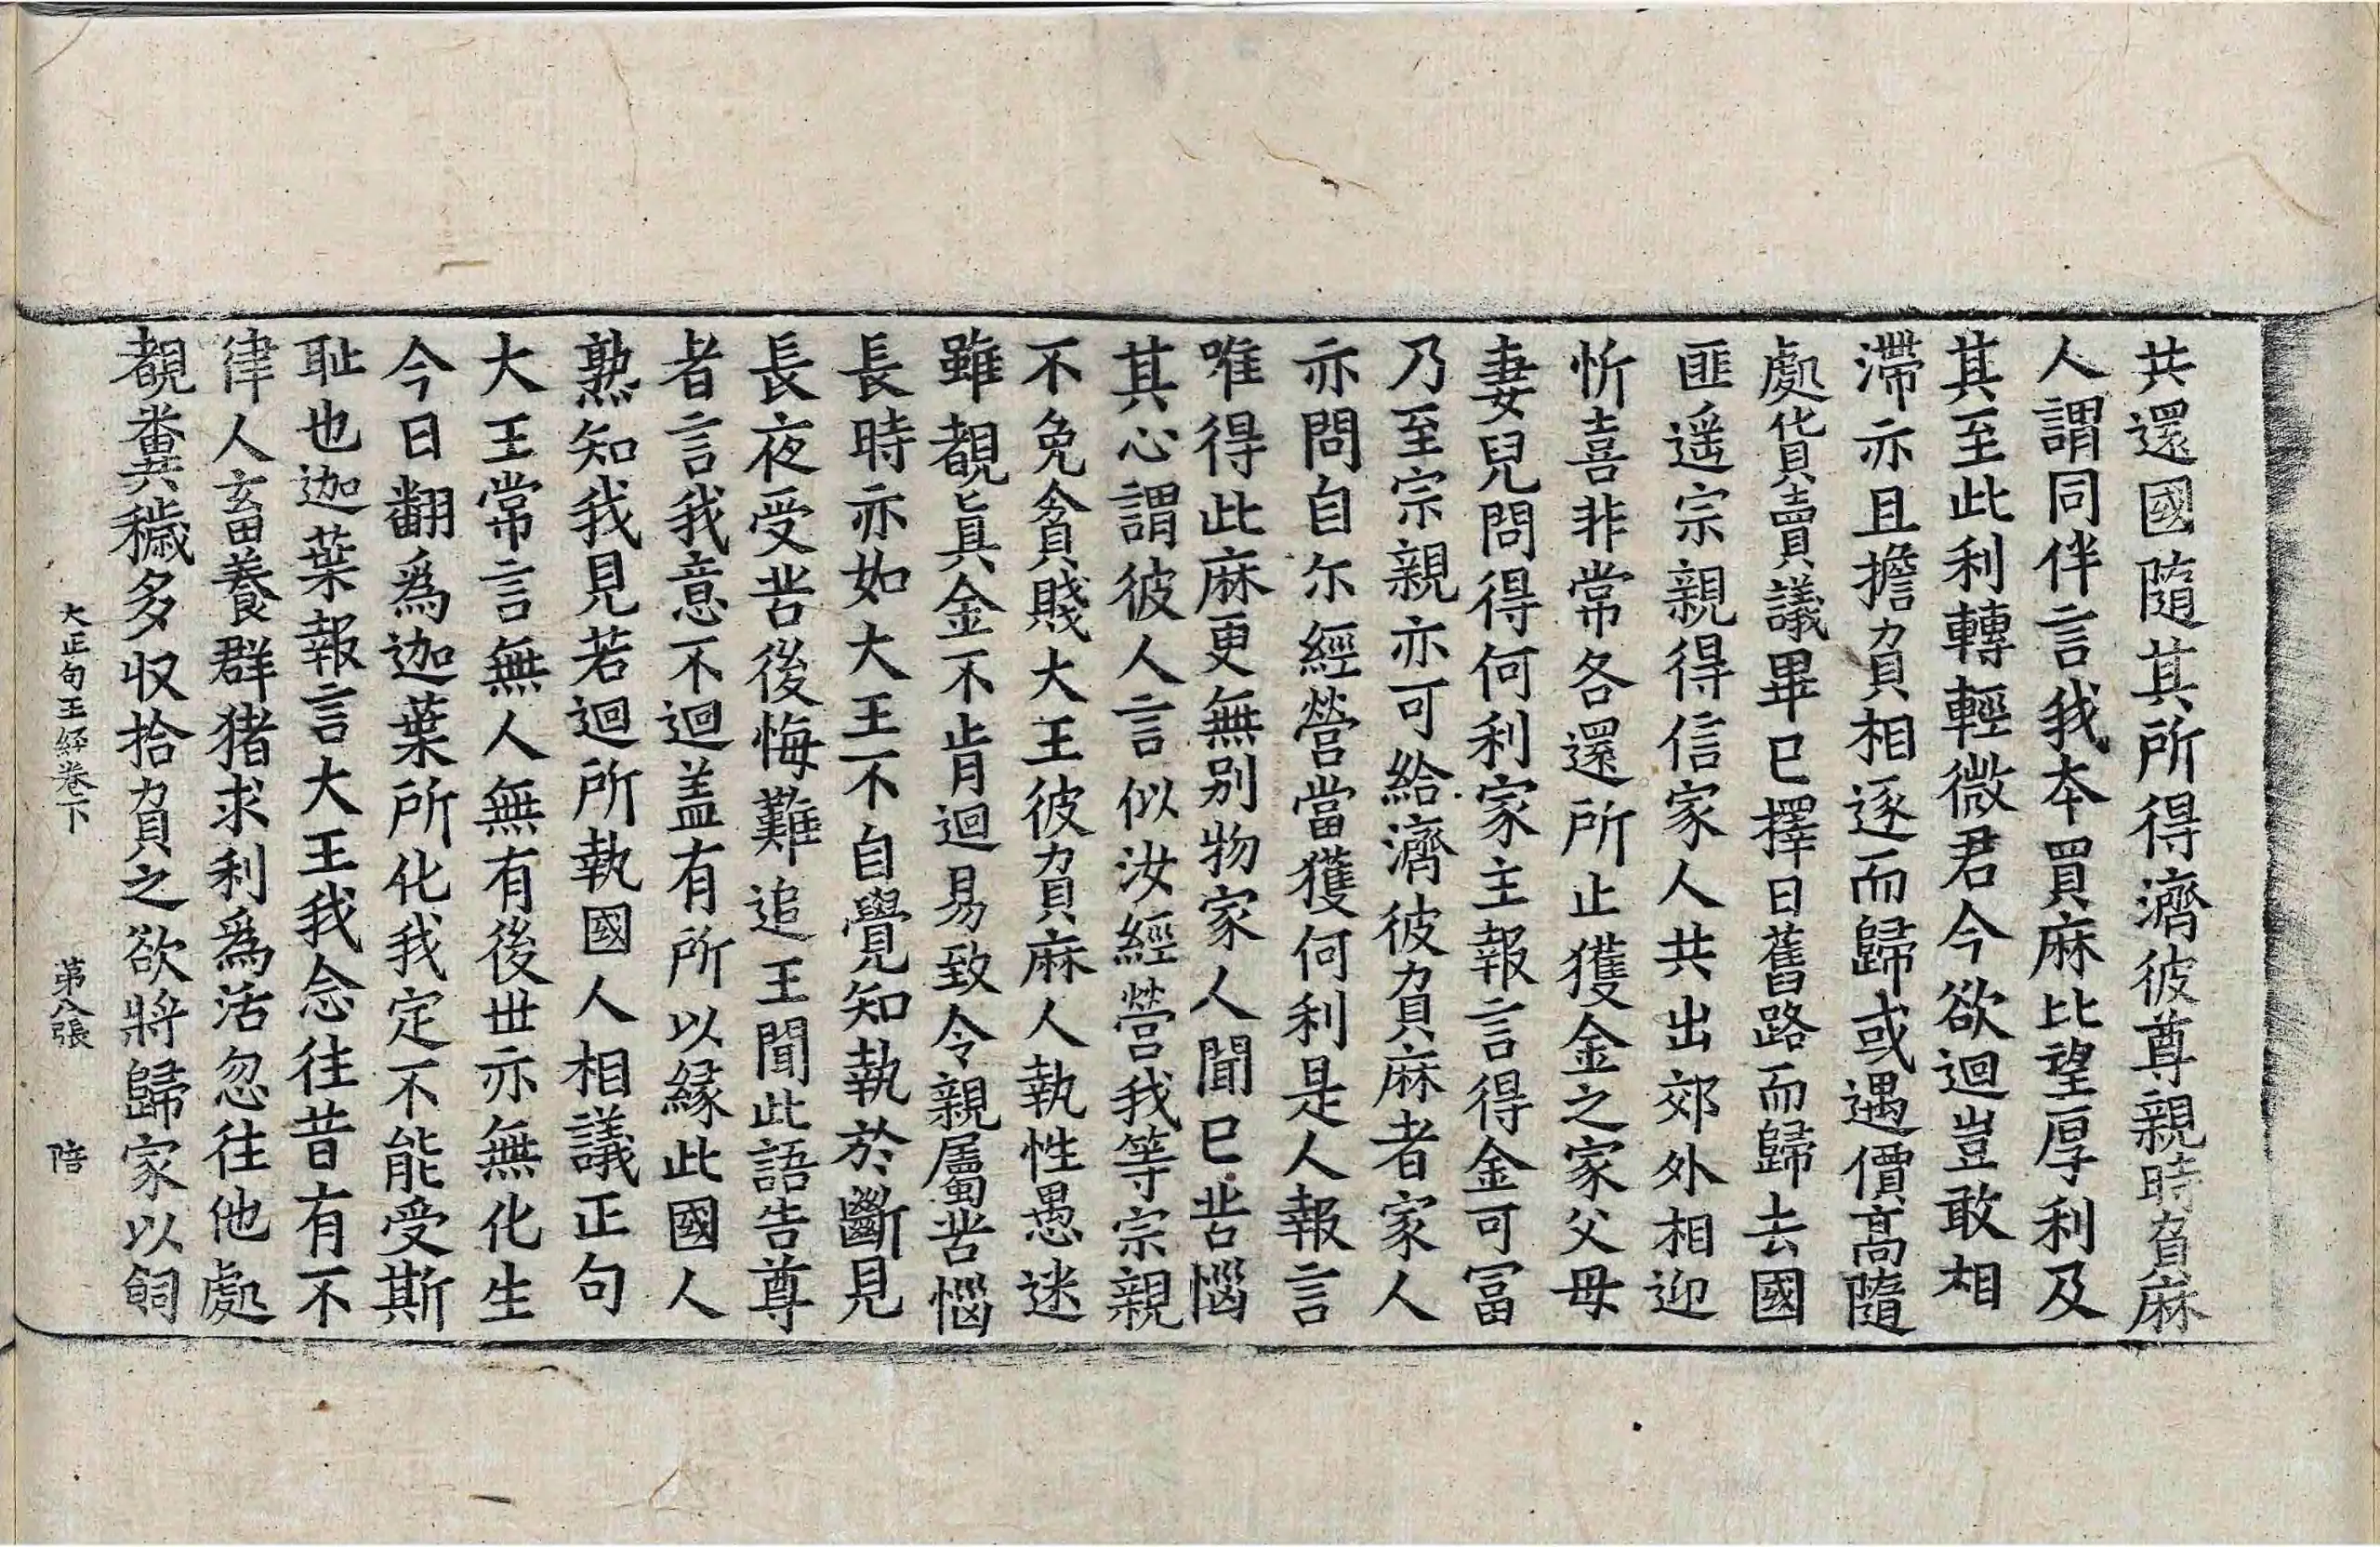 共還國隨其所得濟彼尊親時負麻
人謂同伴言我本買麻比望厚利及
其至此利轉輕微君今欲迴豈敢相
滯亦且擔負相逐而歸或遇價高隨
處貨賣議畢已擇日舊路而歸去國
匪遥宗親得信家人共出郊外相迎
忻喜非常各還所止獲金之家父母
妻兒問得何利家主報言得金可冨
乃至宗親亦可給濟彼負麻者家人
亦問自尒經營當獲何利是人報言
唯得此麻更無别物家人聞已苦惱
其心謂彼人言似汝經營我等宗親
不免貪賤大王彼負麻人執性愚迷
雖覩真金不肯迴易致令親屬苦惱
長時亦如大王不自覺知執於斷見
長夜受苦後悔難追王聞此語告尊
者言我意不迴盖有所以縁此國人
熟知我見若迴所執國人相議正句
大王常言無人無有後世亦無化生
今日翻爲迦葉所化我定不能受斯
耻也迦葉報言大王我念往昔有不
律人畜養群猪求利爲活忽往他處
覩糞穢多収拾負之欲將歸家以飼
大正句王経卷下 第八張 陪